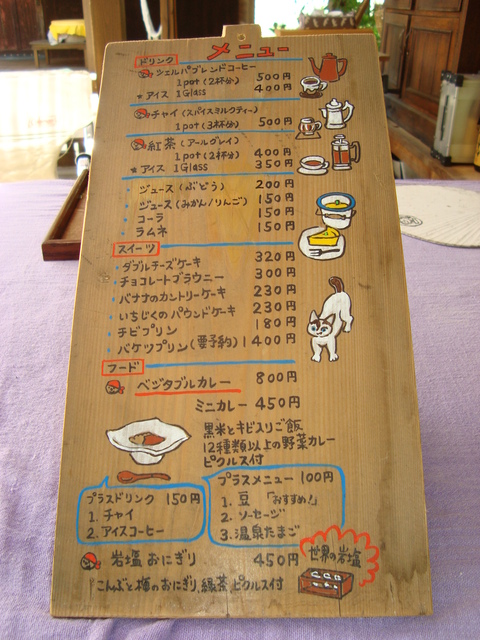 メニュー
ドリンク
シェルパブレンドコーヒー
1pot (2杯分) 500円
★アイス 1Glass 400円
チャイ (スパイスミルクティー)
1pot (3杯分) 500円
紅茶 (アールグレイ)
1pot (2杯分) 400円
★アイス 1Glass 350円
・ジュース (ぶどう) 200円
・ジュース (みかん/りんご) 150円
・コーラ 150円
・ラムネ 150円
スイーツ
・ダブルチーズケーキ 320円
・チョコレートブラウニー 300円
・バナナのカントリーケーキ 230円
・いちじくのパウンドケーキ 230円
・チビプリン 180円
・バケツプリン (要予約) 1400円
フード
ベジタブルカレー 800円
ミニカレー 450円
黒米とキビ入りご飯
12種類以上の野菜カレー
ピクルス付
プラスドリンク 150円
1. チャイ
2. アイスコーヒー
プラスメニュー 100円
1. 豆 「おすすめ!」
2. ソーセージ
3. 温泉たまご
岩塩おにぎり 450円
世界の岩塩
こんぶと梅のおにぎり、緑茶 ピクルス付